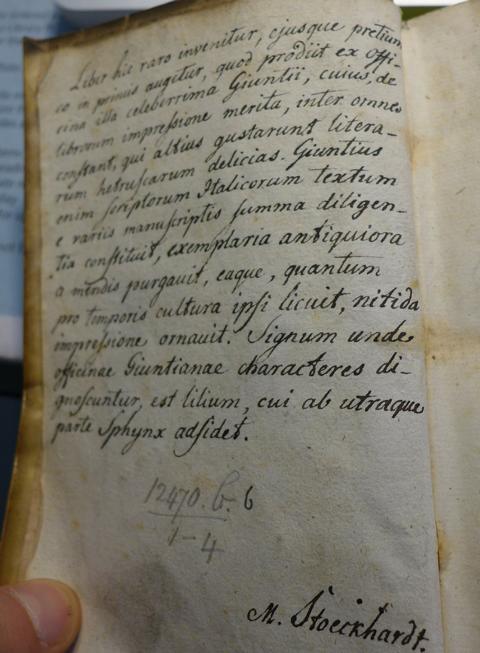 Liber hic raro invenitur, ejusque pretium
eo in primis augetur, quod prodiit ex offi-
cina illa celeberrima Giuntii, cuius, de
librorum impreſsione merita, inter omnes
conſtant, qui altius gustarunt litera-
rum hetruſcarum delicias. Giuntius
enim ſcriptorum Italicorum textum
e variis manuſcriptis ſumma diligen-
tia conſtituit, exemplaria antiquiora
a mendis purgauit, eaque, quantum
pro temporis cultura ipſi licuit, nitida
impreſsione ornauit. Signum unde
officinae Giuntianae characteres di-
gnoſcuntur, est lilium, cui ab utraque
parte Sphynx adſidet.
12470. b. 6
1-4
M. Stoeckhardt.